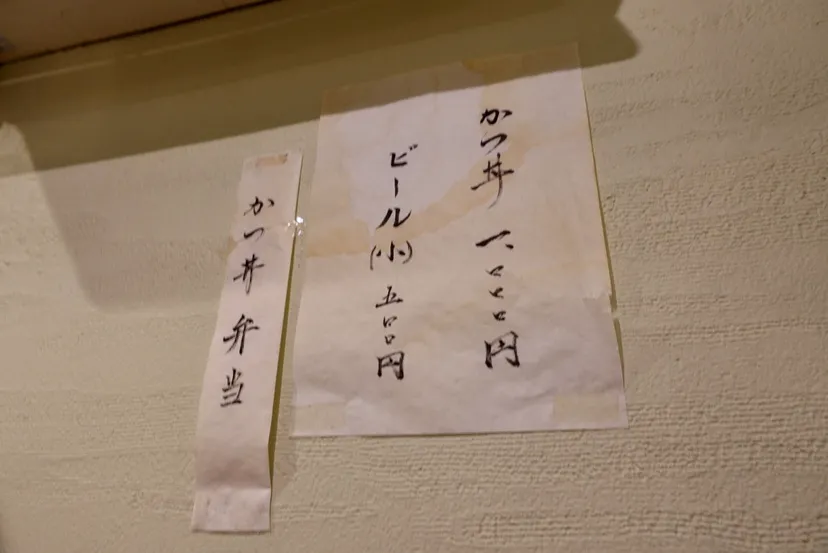 かつ丼 一、〇〇〇円
ビール(小) 五〇〇円
かつ丼弁当